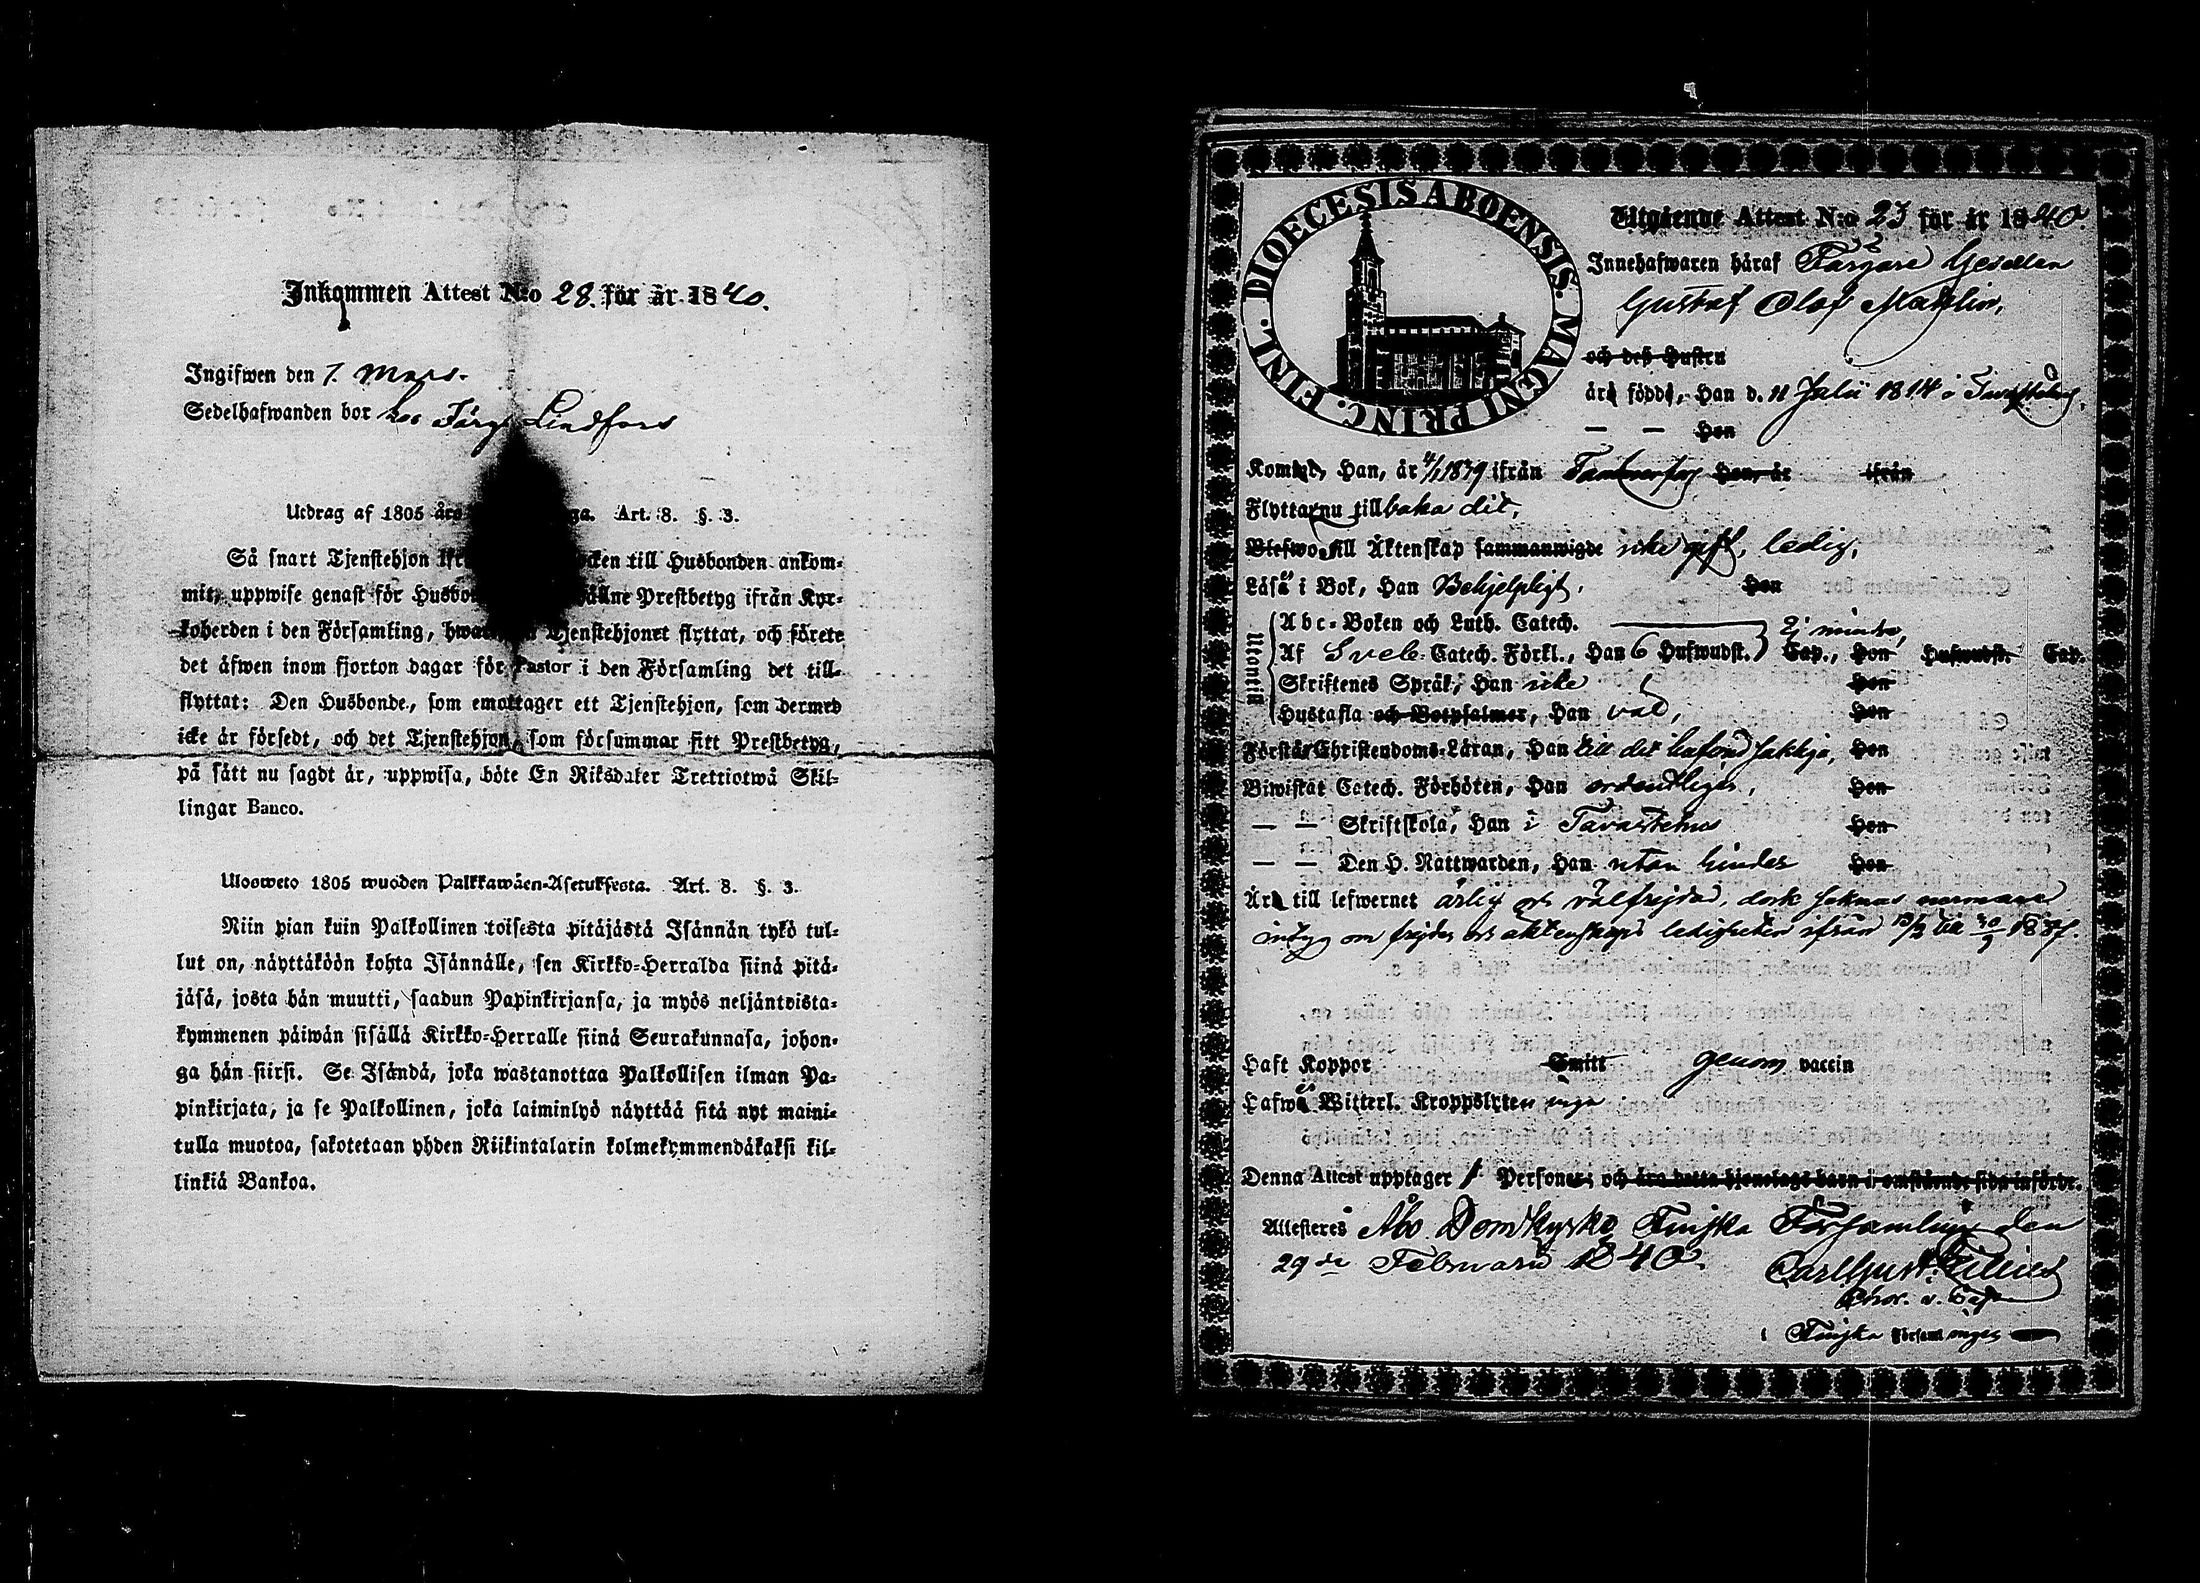 Inkommen Attest N:o 28. för år 1840.
Ingifwen den 7. Mars.
Sedelhafwanden bor hos Färg. Lindfors
Utdrag af 1805 års ga. Art. 8. §. 3.
Så snart Tjenstehjon ifrå cken till Husbonden ankom-
mit, uppwise genast för Husbo ällne Prestbetyg ifrån Kyr-
koherden i den Församling, hwar Tjenstehjonet flyttat, och förete
det äfwen inom fjorton dagar för Pastor i den Församling det till-
flyttat: Den Husbonde, som emottager ett Tjenstehjon, som dermed
icke är försedt, och det Tjenstehjon, som försummar sitt Prestbetyg,
på sätt nu sagdt är, uppwisa, böte En Riksdaler Trettiotwå Skil-
lingar Banco.
Ulosweto 1805 wuoden Palkkawäen-Asetuksesta. Art. 8. §. 3.
Niin pian kuin Palkollinen toisesta pitäjästä Isännän tykö tul-
lut on, näyttäköön kohta Isännälle, sen Kirkko-Herralda siinä pitä-
jäsä, josta hän muutti, saadun Papinkirjansa, ja myös neljäntoista-
kymmenen päiwän sisällä Kirkko-Herralle siinä Seurakunnasa, johon-
ga hän siirsi. Se Isändä, joka wastanottaa Palkollisen ilman Pa-
pinkirjata, ja se Palkollinen, joka laiminlyö näyttää sitä nyt maini-
tulla muotoa, sakotetaan yhden Riikintalarin kolmekymmendäkaksi kil-
linkiä Bankoa.
DIOECESIS ABOENSIS. MAGNI PRINC. FINL.
Utgående Attest N:o 23 för år 1840.
Innehafwaren häraf Färgare Gesellen
Gustaf Olof Mathlin,
och deß Hustru
ära födde, Han d. 11 Julii 1814 i Tavastehus,
— — Hon
Komne, Han, år 4/1 1839 ifrån Tammerfors Hon, år ifrån
Flytta nu tillbaka dit,
Blefwo till Äktenskap sammanwigde icke gift, ledig,
Läsa i Bok, Han Behjelpligt, Hon
Utantill
Abc-Boken och Luth. Catech. Ej mindre,
Af Sveb. Catech. Förkl., Han 6 Hufwudst. Cap., Hon Hufwudst. Cap.
Skriftenes Språk, Han icke Hon
Hustafla och Botpsalmer, Han väl, Hon
Förstår Christendoms-Läran, Han till det Hon
Biwistat Catech. Förhören, Han ordentligen, Hon
— — Skriftskola, Han i Tavastehus Hon
— — Den H. Nattwarden, Han utan hinder Hon
Är till lefwernet ärlig och välfrejdad, dock saknas närmare
intyg om frejd och äktenskaps ledigheten ifrån 12/3 till 30/9 1837.
Haft Koppor Smitt genom vaccin
Hafwa Witterl. Kroppslyten inga
Denna Attest upptager 1 Personer; och äro detta hjonelags barn å omstående sida införde.
Attesteres Åbo Domkyrko Finska Församling den
29de Februarii 1840.
Carl Gust.
i Finska Församlingen